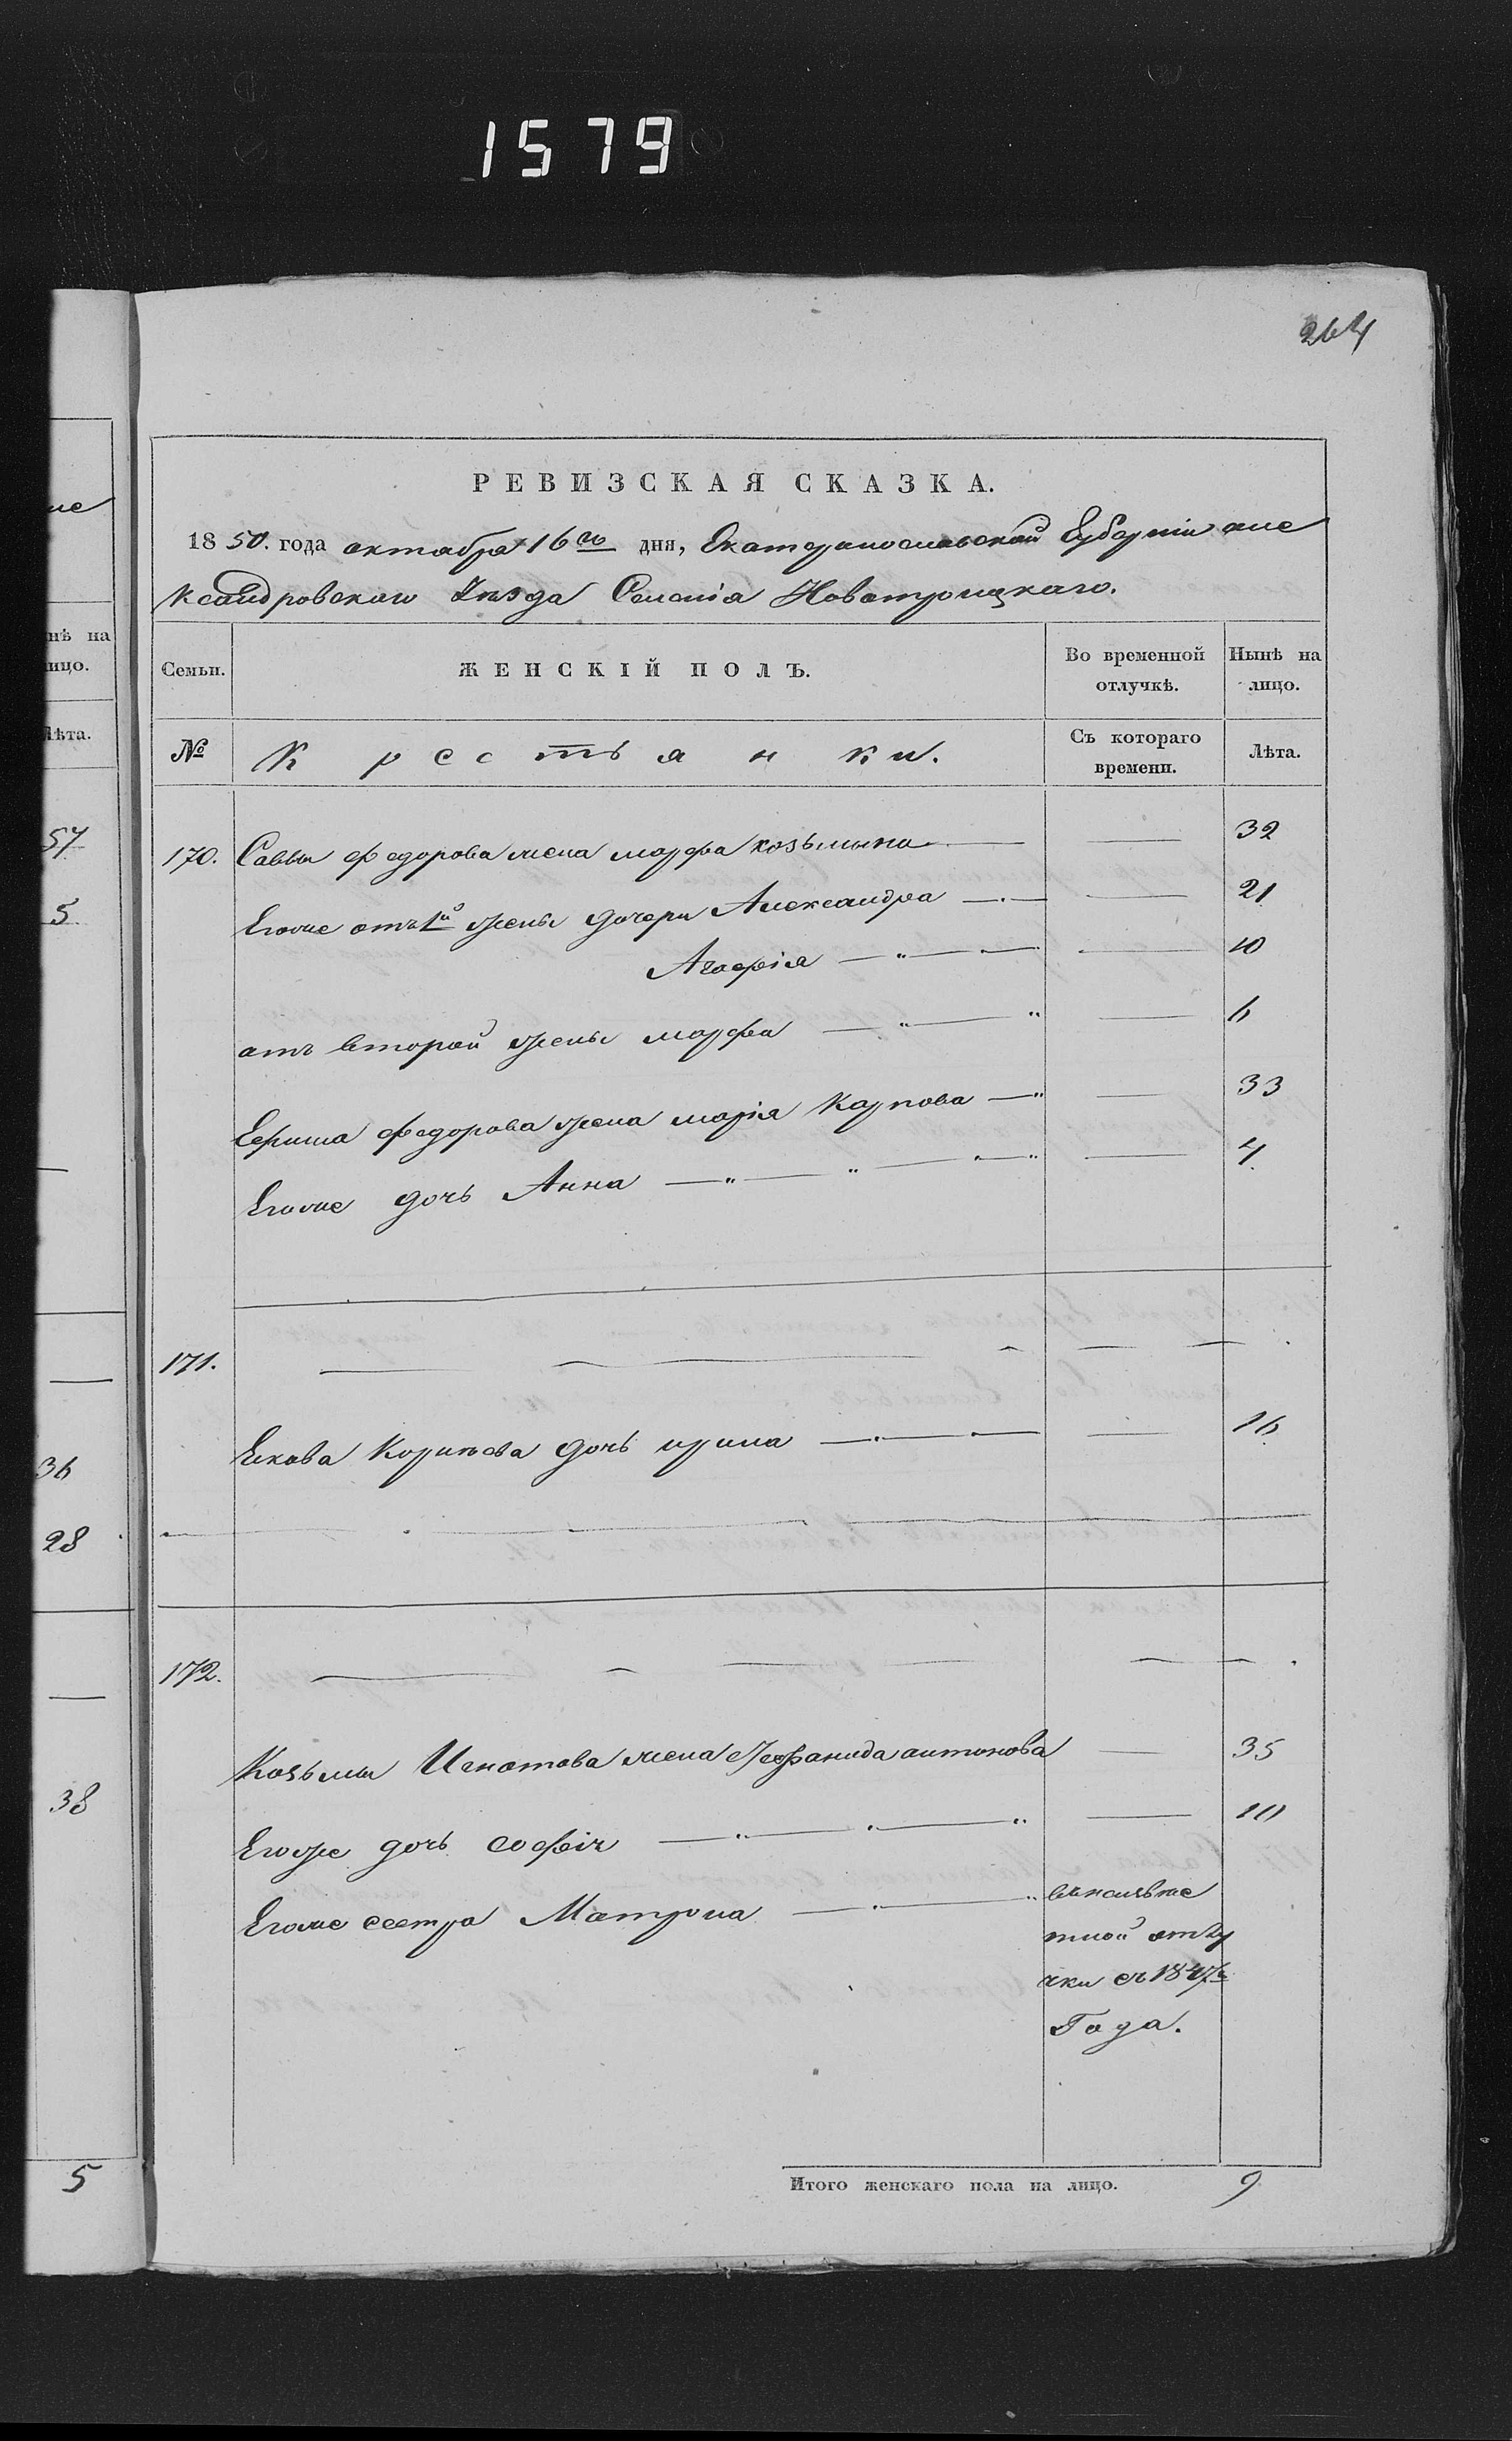 1579
264
РЕВИЗСКАЯ СКАЗКА.
1850. года октабра 16го дня, Екатеринославской Губерніи але
ксандровскаго Уѣзда Селенія Новотроицкаго.
Семьи. ЖЕНСКІЙ ПОЛЪ. Во временной отлучкѣ. Нынѣ на лицо.
№ Крестьянки. Съ котораго времени. Лѣта.
170. Саввы федорова жена марфа козьмына — 32
Егоже отъ 1й жены дочери Александра — 21
Агафія — 10
отъ второй жены марфа — 6
Ефима федорова жена марія Карпова — 33
Егоже дочь Анна — 4.
171.
Якова дочь ирина — 16
172.
Козьмы Игнатова жена антонова — 35
Егоже дочь софія — 10
Егоже сестра Матрона
тной отлу
чки съ 1847го
Года.
Итого женскаго пола на лицо. 9
ие
нѣ на
ицо.
Лѣта.
57
5
36
28
38
5